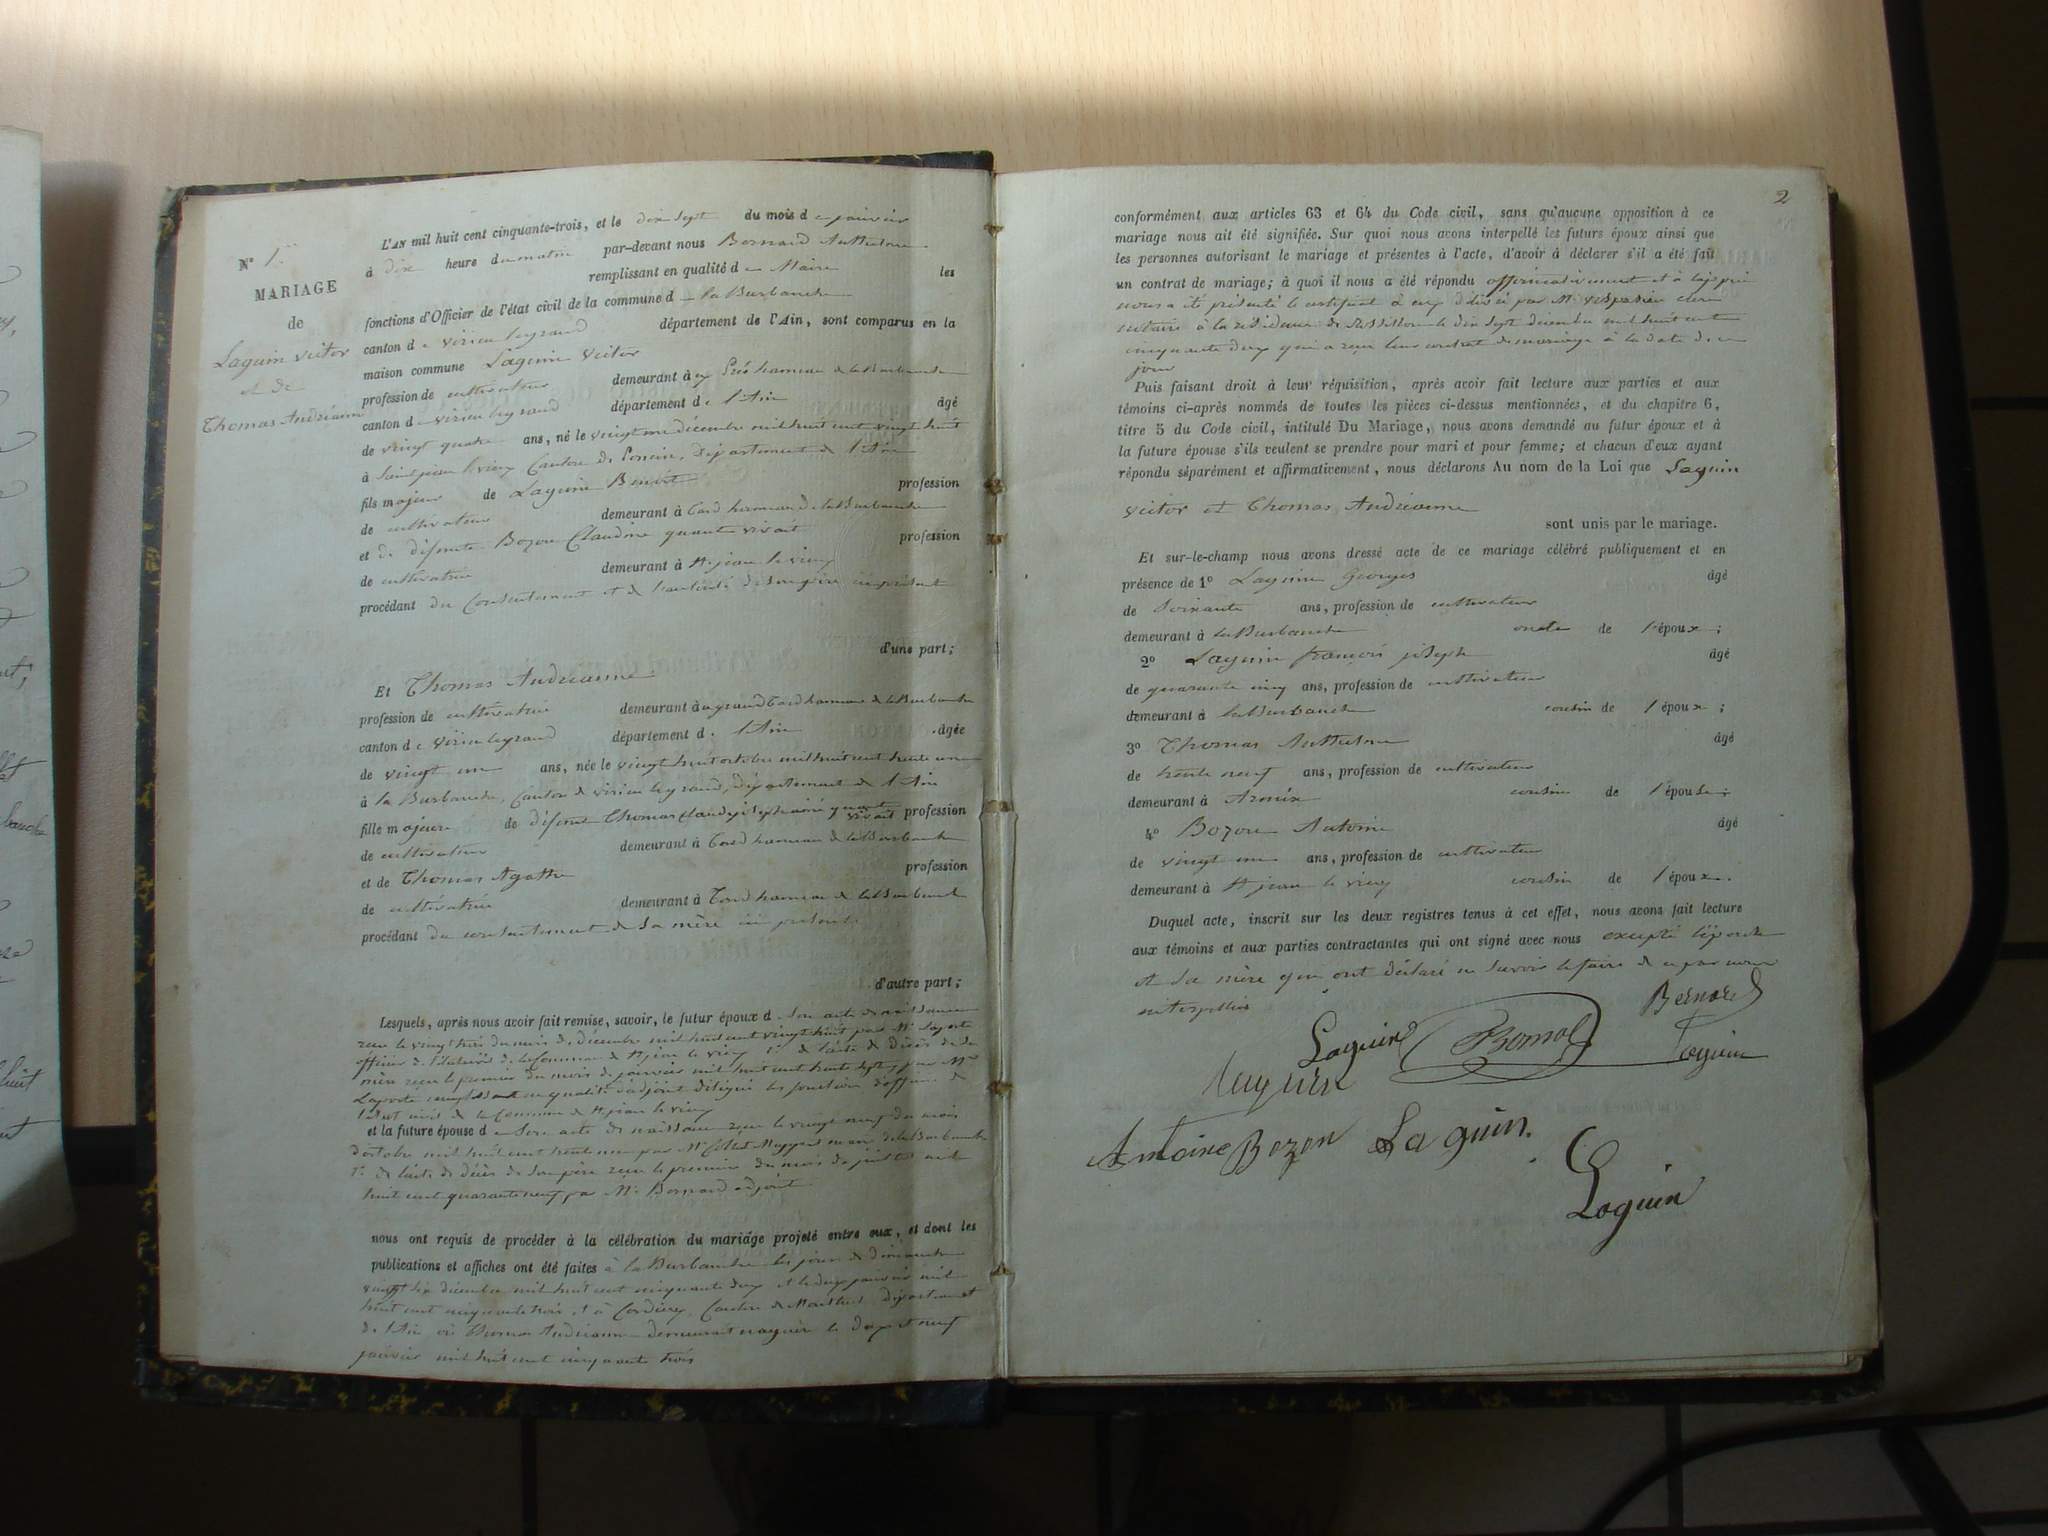 N° 1er
MARIAGE
de
Laguin Victor
et de
Thomas Andréanne
L'AN mil huit cent cinquante-trois, et le dix sept du mois de janvier
à dix heure du matin par-devant nous Bernard Anthelme
remplissant en qualité de Maire les
fonctions d'Officier de l'état civil de la commune de la Burbanche
canton de virieu legrand département de l'Ain, sont comparus en la
maison commune Laguin Victor
profession de cultivateur demeurant à hameau de la Burbanche
canton de virieu legrand département de l'Ain âgé
de vingt quatre ans, né le vingt décembre mil huit cent vingt huit
à Saint jean le vieux Canton de Poncin, département de l'Ain
fils majeur de Laguin Benoit profession
de cultivateur demeurant à Tard hameau de la Burbanche
et de défunte Bozon Claudine quant vivait profession
de cultivatrice demeurant à St jean le vieux
procédant du Consentement et de l'autorité de son père ici présent
d'une part;
Et Thomas Andréanne
profession de cultivatrice demeurant à hameau de la Burbanche
canton de Virieu legrand département de l'Ain âgée
de vingt un ans, née le vingt huit octobre mil huit cent trente un
à la Burbanche, Canton de virieu legrand, département de l'Ain
fille majeure de défunt Thomas Claude joseph aimé quant vivait profession
de cultivateur demeurant à Tard hameau de la Burbanche
et de Thomas Agathe profession
de cultivatrice demeurant à Tard hameau de la Burbanche
procédant du consentement de sa mère ici présente
d'autre part;
Lesquels, après nous avoir fait remise, savoir, le futur époux de son acte de naissance
reçu le vingt trois du mois de décembre mil huit cent vingt huit par Mr Laporte
officier de l'état civil de la Commune de St jean le vieux de l'acte de décès de sa
mère reçu le premier du mois de janvier mil huit cent trente sept, par Mr
Laporte en qualité d'adjoint délégué les fonctions d'officier de
l'état civil de la Commune de St jean le vieux
et la future épouse de son acte de naissance reçu le vingt neuf du mois
d'octobre mil huit cent trente un par Mr maire de la Burbanche
de l'acte de décès de son père reçu le premier du mois de juillet mil
huit cent quarante neuf par Mr Bernard adjoint
nous ont requis de procéder à la célébration du mariage projeté entre eux, et dont les
publications et affiches ont été faites à la Burbanche les jours de dimanche
vingt six décembre mil huit cent cinquante deux et le deux janvier mil
huit cent cinquante trois et à Cordieux, Canton de Montluel département
de l'Ain où Thomas Andréanne demeurait naguère le deux et neuf
janvier mil huit cent cinquante trois
2
conformément aux articles 63 et 64 du Code civil, sans qu'aucune opposition à ce
mariage nous ait été signifiée. Sur quoi nous avons interpellé les futurs époux ainsi que
les personnes autorisant le mariage et présentes à l'acte, d'avoir à déclarer s'il a été fait
un contrat de mariage; à quoi il nous a été répondu affirmativement et à l'appui
nous a été présenté le certificat à eux délivré par Mr
notaire à la résidence de le dix sept décembre mil huit cent
cinquante deux qui a reçu leur contrat de mariage à la date de ce
jour
Puis faisant droit à leur réquisition, après avoir fait lecture aux parties et aux
témoins ci-après nommés de toutes les pièces ci-dessus mentionnées, et du chapitre 6,
titre 5 du Code civil, intitulé Du Mariage, nous avons demandé au futur époux et à
la future épouse s'ils veulent se prendre pour mari et pour femme; et chacun d'eux ayant
répondu séparément et affirmativement, nous déclarons Au nom de la Loi que Laguin
Victor et Thomas Andréanne
sont unis par le mariage.
Et sur-le-champ nous avons dressé acte de ce mariage célébré publiquement et en
présence de 1° Laguin Georges âgé
de Soixante ans, profession de cultivateur
demeurant à la Burbanche oncle de l'époux;
2° Laguin françois joseph âgé
de quarante cinq ans, profession de cultivateur
demeurant à la Burbanche cousin de l'époux;
3° Thomas Anthelme âgé
de trente neuf ans, profession de cultivateur
demeurant à Armix cousin de l'épouse;
4° Bozon Antoine âgé
de vingt un ans, profession de cultivateur
demeurant à St jean le vieux cousin de l'époux.
Duquel acte, inscrit sur les deux registres tenus à cet effet, nous avons fait lecture
aux témoins et aux parties contractantes qui ont signé avec nous excepté l'épouse
et sa mère qui ont déclaré ne savoir le faire de ce par nous
interpellées
Bernard
Laguin
Laguin
Antoine Bozon Laguin.
Laguin